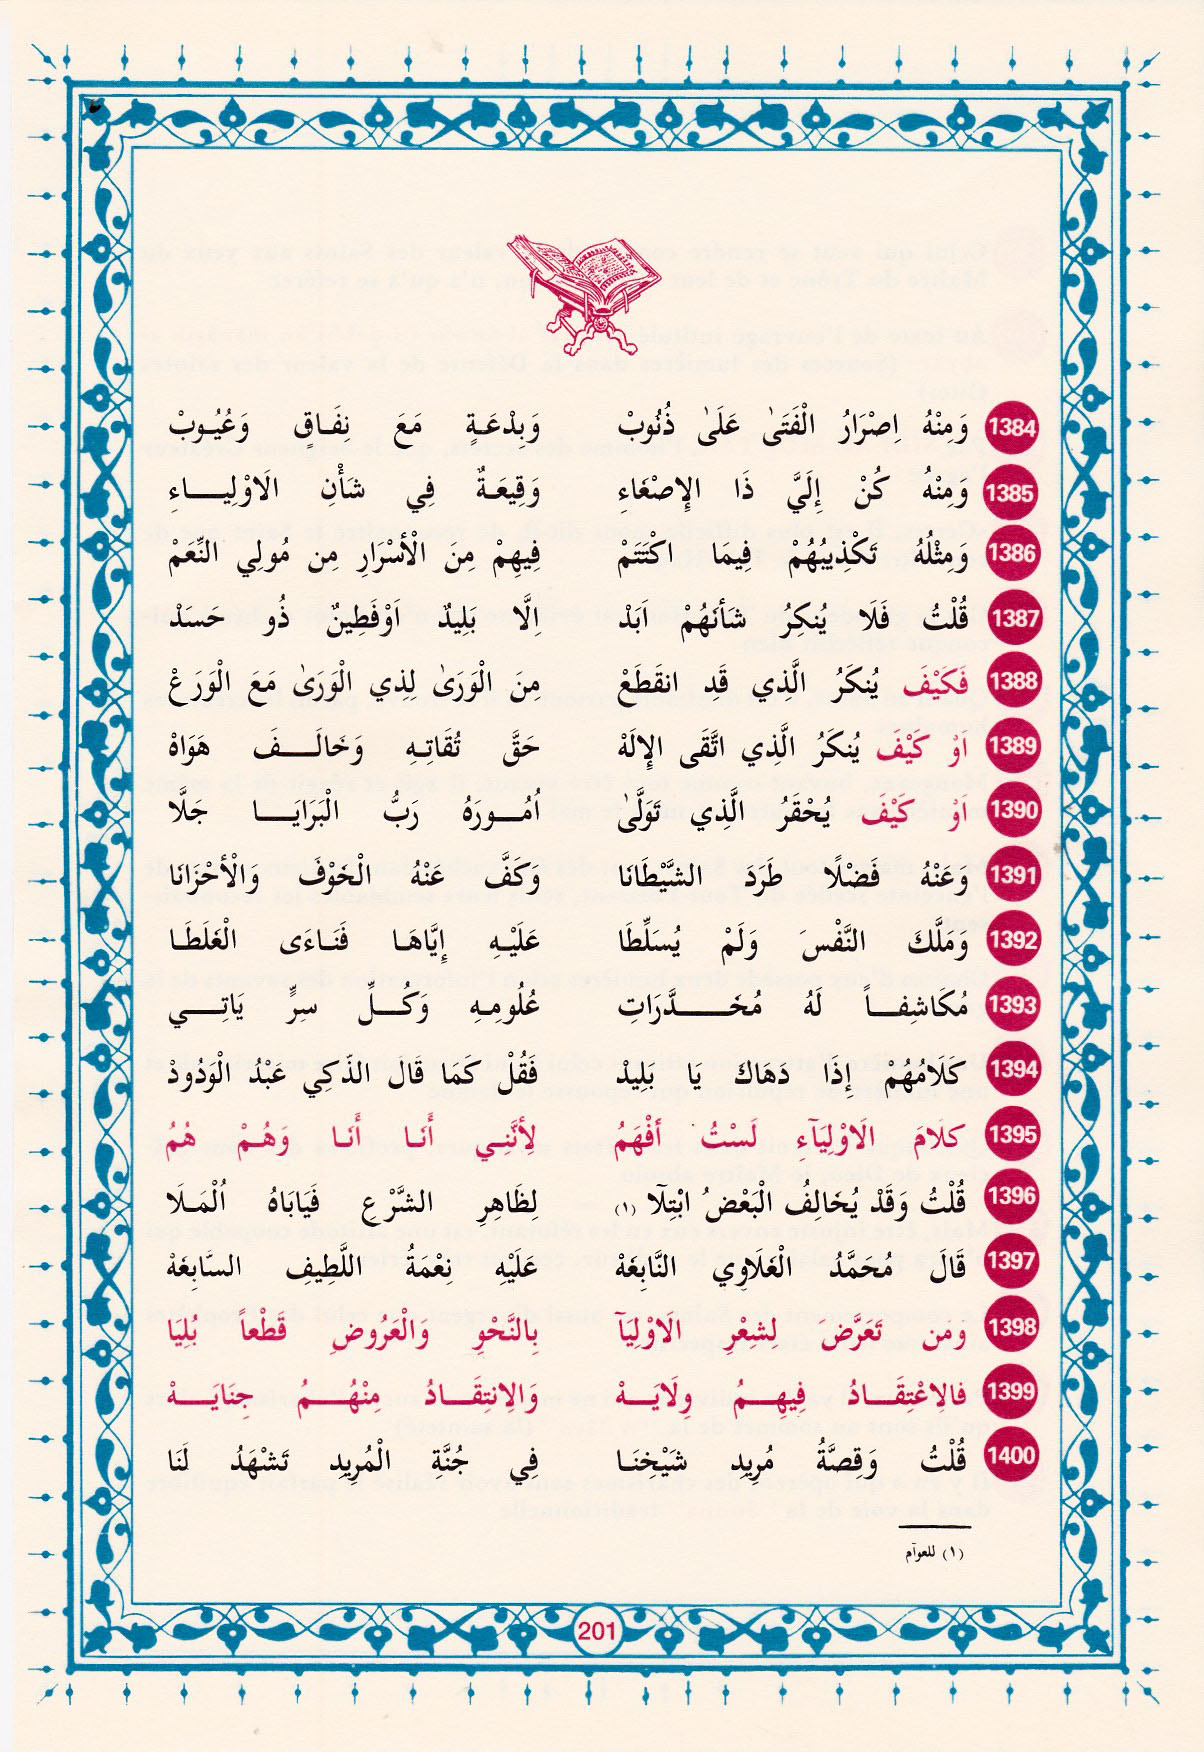 1384 وَمِنْهُ اِصْرَارُ الْفَتَىٰ عَلَىٰ ذُنُوبْ وَبِدْعَةٍ مَعَ نِفَاقٍ وَعُيُوبْ
1385 وَمِنْهُ كُنْ إِلَيَّ ذَا الإِصْغَاءِ وَقِيعَةٌ فِي شَأْنِ الَاوْلِيَاءِ
1386 وَمِثْلُهُ تَكْذِيبُهُمْ فِيمَا اكْتَتَمْ فِيهِمْ مِنَ الْأَسْرَارِ مِن مُولِي النِّعَمْ
1387 قُلْتُ فَلَا يُنكِرُ شَأنَهُمْ اَبَدْ اِلَّا بَلِيدٌ اَوْفَطِينٌ ذُو حَسَدْ
1388 فَكَيْفَ يُنكَرُ الَّذِي قَدِ انقَطَعْ مِنَ الْوَرَىٰ لِذِي الْوَرَىٰ مَعَ الْوَرَعْ
1389 اَوْ كَيْفَ يُنكَرُ الَّذِي اتَّقَى الإِلَهْ حَقَّ تُقَاتِهِ وَخَالَفَ هَوَاهْ
1390 اَوْ كَيْفَ يُحْقَرُ الَّذِي تَوَلَّىٰ اُمُورَهُ رَبُّ الْبَرَايَا جَلَّا
1391 وَعَنْهُ فَضْلًا طَرَدَ الشَّيْطَانَا وَكَفَّ عَنْهُ الْخَوْفَ وَالْأَحْزَانَا
1392 وَمَلَّكَ النَّفْسَ وَلَمْ يُسَلِّطَا عَلَيْهِ إِيَّاهَا فَنَاءَى الْغَلَطَا
1393 مُكَاشِفاً لَهُ مُخَدَّرَاتِ عُلُومِهِ وَكُلِّ سِرٍّ يَاتِي
1394 كَلَامُهُمْ إِذَا دَهَاكَ يَا بَلِيدْ فَقُلْ كَمَا قَالَ الذَّكِي عَبْدُ الْوَدُودْ
1395 كلَامَ الَاوْلِيَآءِ لَسْتُ أَفْهَمُ لِأَنَّنِي أَنَا أَنَا وَهُمْ هُمُ
1396 قُلْتُ وَقَدْ يُخَالِفُ الْبَعْضُ ابْتِلَا (١) لِظَاهِرِ الشَّرْعِ فَيَابَاهُ اُلْمَلَا
1397 قَالَ مُحَمَّدُ الْغَلَاوِي النَّابِغَهْ عَلَيْهِ نِعْمَةُ اللَّطِيفِ السَّابِغَهْ
1398 وَمَن تَعَرَّضَ لِشِعْرِ الَاوْلِيَآ بِالنَّحْوِ وَالْعَرُوضِ قَطْعاً بُلِيَا
1399 فالِاعْتِقَادُ فِيهِمُ وِلَايَهْ وَالِانتِقَادُ مِنْهُمُ جِنَايَهْ
1400 قُلْتُ وَقِصَّةُ مُرِيدِ شَيْخِنَا فِي جُنَّةِ الْمُرِيدِ تَشْهَدُ لَنَا
(١) للعوآم
201